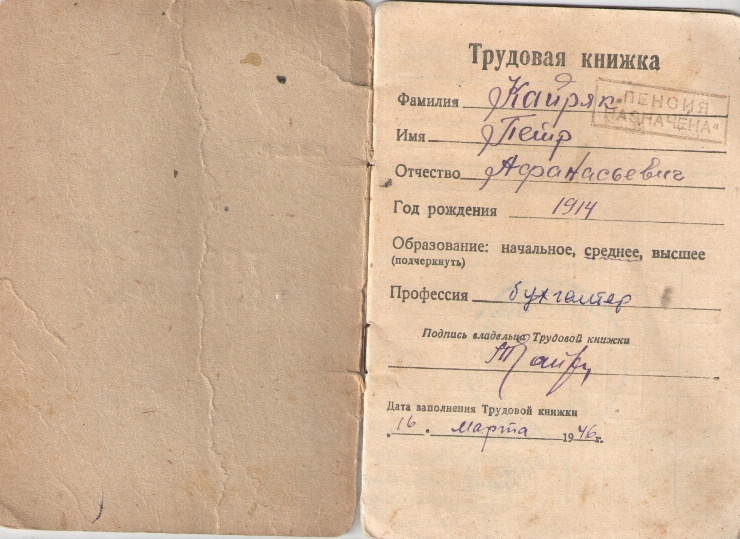 Трудовая книжка
Фамилия Кайряк
"ПЕНСИЯ
НАЗНАЧЕНА"
Имя Петр
Отчество Афанасьевич
Год рождения 1914
Образование: начальное, среднее, высшее
(подчеркнуть)
Профессия бухгалтер
Подпись владельца Трудовой книжки
Дата заполнения Трудовой книжки
"16" марта 1946 г.